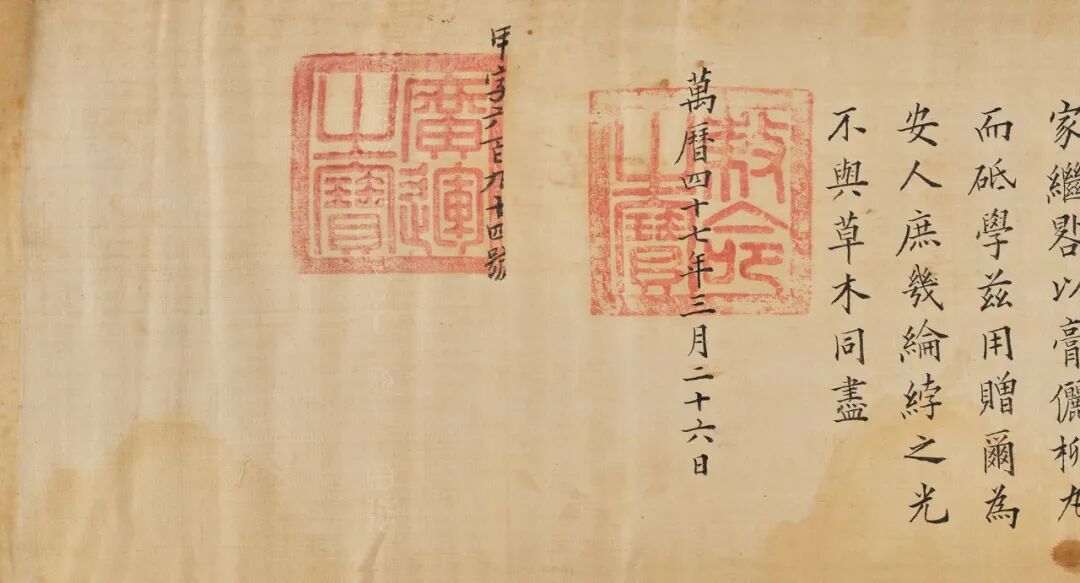 家繼晷以膏儷柳丸
而砥學茲用贈爾為
安人庶幾綸綍之光
不與草木同盡
萬曆四十七年三月二十六日
敕命之寶
甲字六百九十四號
廣運之寶